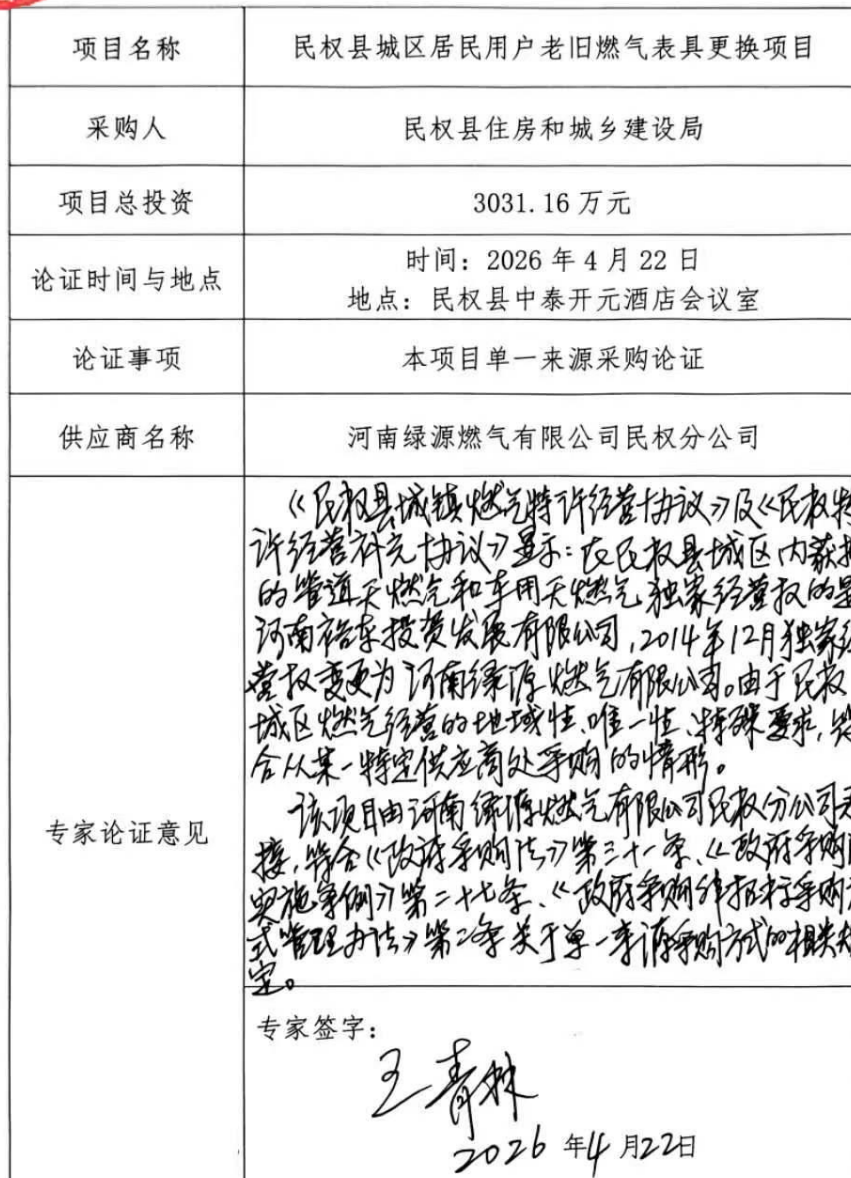 项目名称
民权县城区居民用户老旧燃气表具更换项目
采购人
民权县住房和城乡建设局
项目总投资
3031.16 万元
论证时间与地点
时间：2026 年 4 月 22 日
地点：民权县中泰开元酒店会议室
论证事项
本项目单一来源采购论证
供应商名称
河南绿源燃气有限公司民权分公司
专家论证意见
《民权县城镇燃气特许经营协议》及《民权特
许经营补充协议》显示：在民权县城区内获
的管道天燃气和车用天燃气独家经营权的是
河南裕东投资发展有限公司，2014年12月独家经
营权变更为河南绿源燃气有限公司。由于民权
城区燃气经营的地域性、唯一性、特殊要求，符
合从某一特定供应商处采购的情形。
该项目由河南绿源燃气有限公司民权分公司
接，符合《政府采购法》第三十一条、《政府采购
实施条例》第二十七条、《政府采购非招标采购方
式管理办法》第 条关于单一来源采购方式的相关规
定。
专家签字：
王青林
2026 年4 月22日